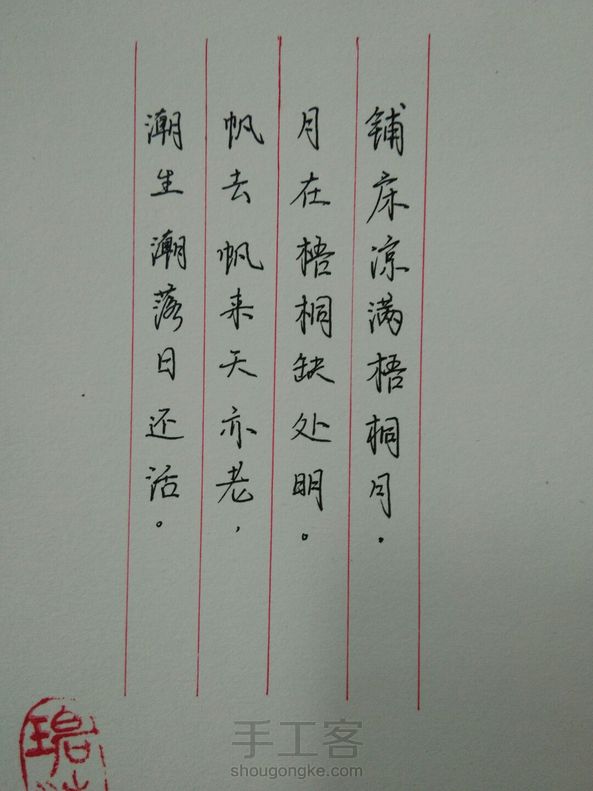 铺床凉满梧桐月.
月在梧桐缺处明。
帆去帆来天亦老,
潮生潮落日还活。
手工客
shougongke.com